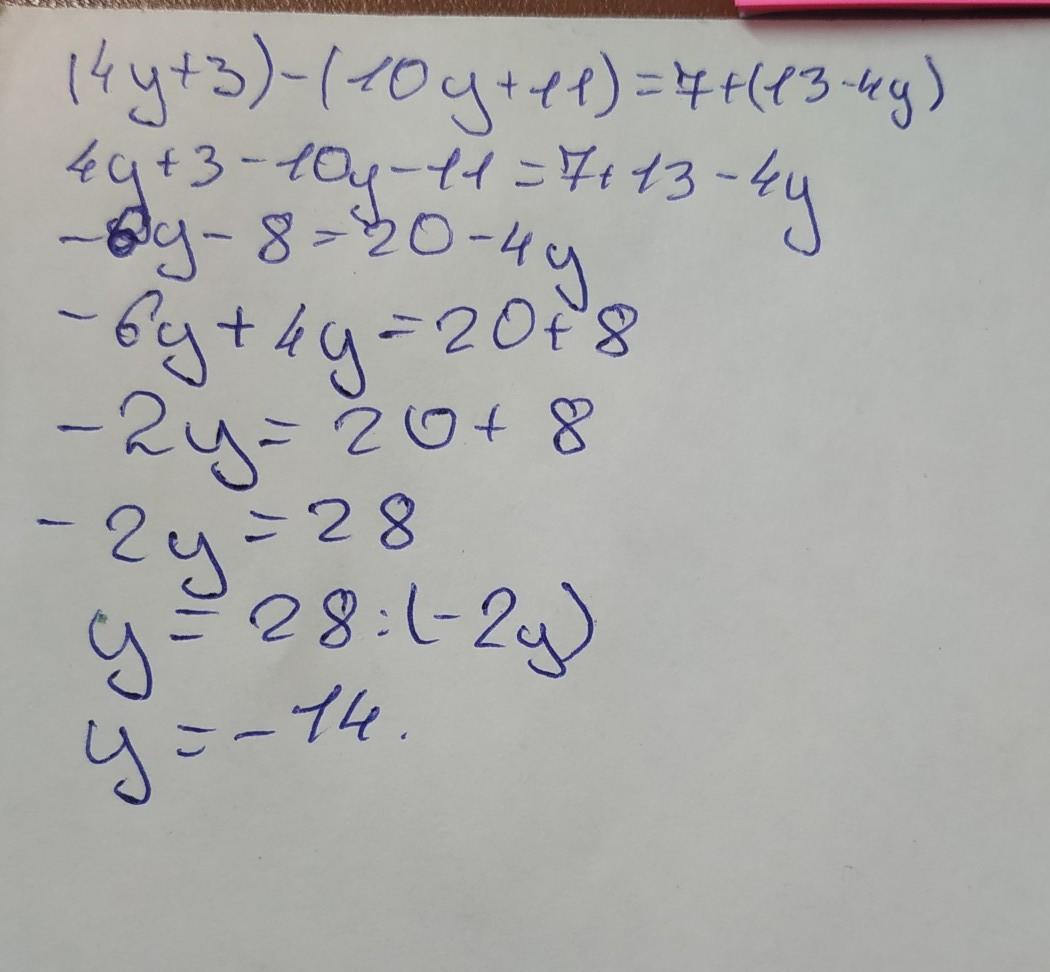 (4y+3)-(10y+11)=7+(13-4y)
4y+3-10y-11=7+13-4y
-6y-8=20-4y
-6y+4y=20+8
-2y=20+8
-2y=28
y=28:(-2y)
y=-14.